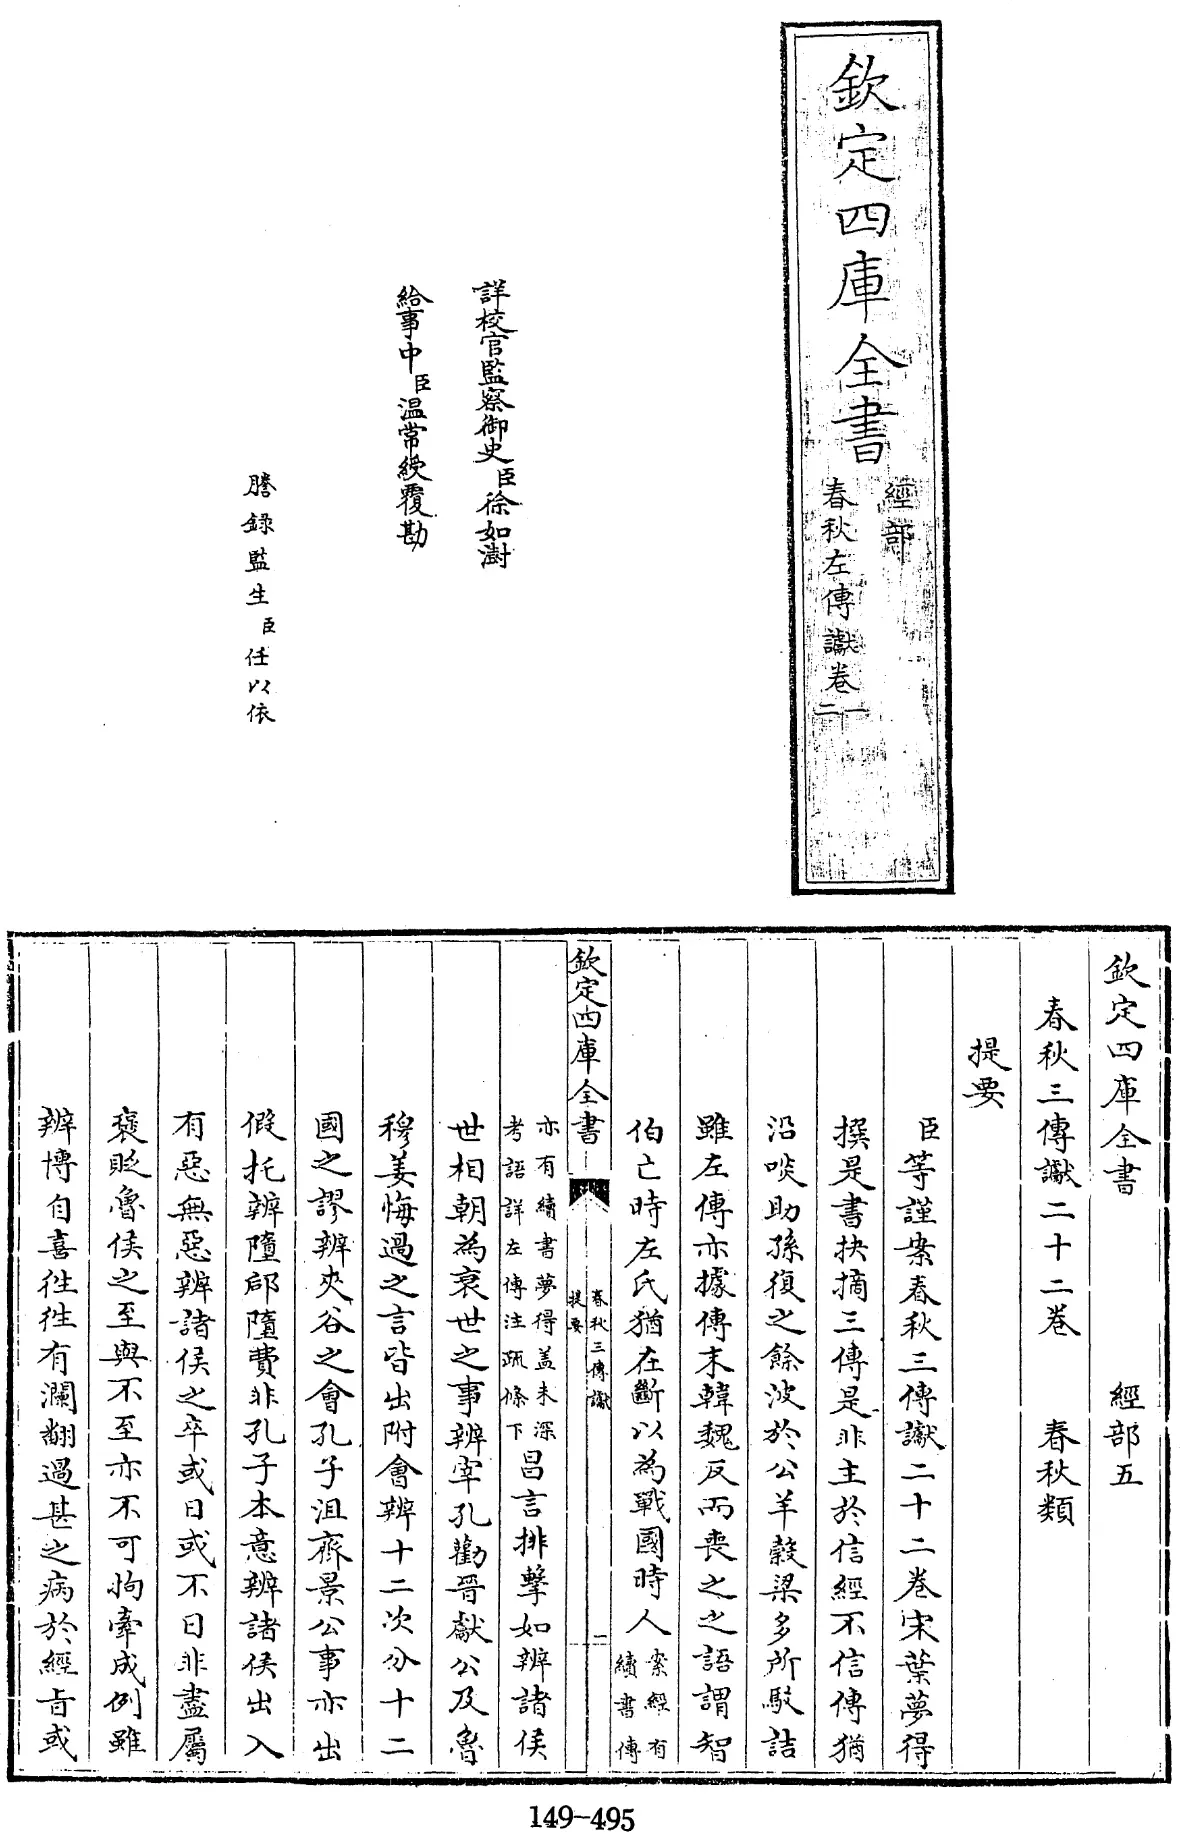 欽定四庫全書
經部
春秋左傳讞卷一
二
詳校官監察御史臣徐如澍
給事中臣温常綬覆勘
謄錄監生臣任以依
欽定四庫全書 經部五
春秋三傳讞二十二卷 春秋類
提要
臣等謹案春秋三傳讞二十二卷宋葉夢得
撰是書抉摘三傳是非主於信經不信傳猶
沿啖助孫復之餘波於公羊穀梁多所駁詰
雖左傳亦據傳末韓魏反而喪之之語謂智
伯亡時左氏猶在斷以為戰國時人案經有
續書傳
欽定四庫全書
春秋三傳讞
提要
一
亦有續書夢得盖未深
考語詳左傳注疏條下昌言排擊如辨諸侯
世相朝為衰世之事辨宰孔勸晉獻公及魯
穆姜悔過之言皆出附會辨十二次分十二
國之謬辨夾谷之會孔子沮齊景公事亦出
假托辨隳郈隳費非孔子本意辨諸侯出入
有惡無惡辨諸侯之卒或日或不日非盡屬
褒貶魯侯之至與不至亦不可拘牽成例雖
辨博自喜徃徃有瀾翻過甚之病於經旨或
149-495